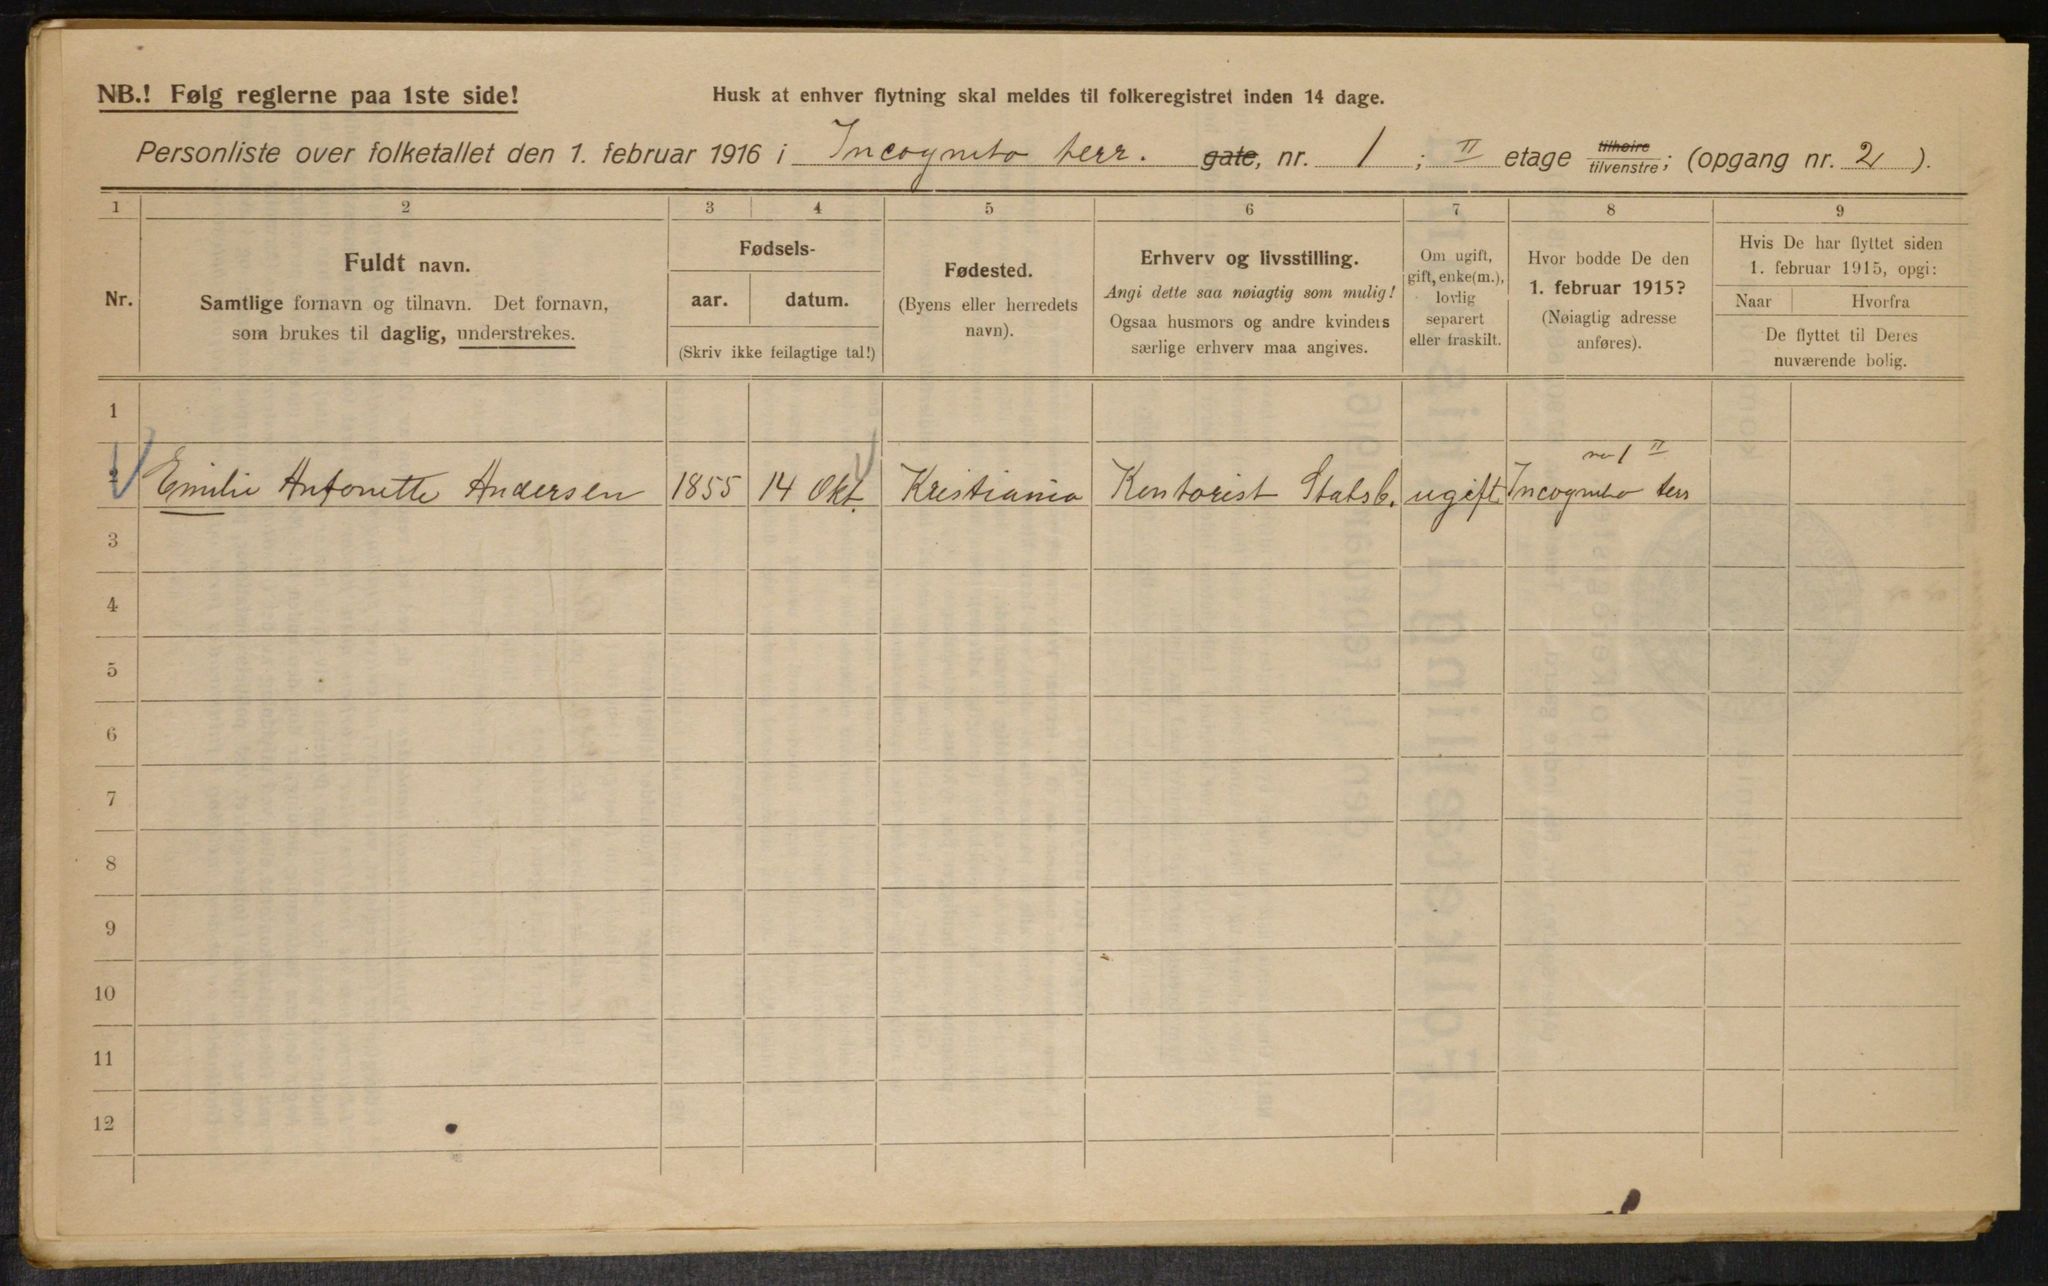 NB.! Følg reglerne paa 1ste side!
Husk at enhver flytning skal meldes til folkeregistret inden 14 dage.
Personliste over folketallet den 1. februar 1916 i Incognito terr. gate, nr. 1 ; II etage tilhøire tilvenstre; (opgang nr. 2 ).
1 2 3 4 5 6 7 8 9
Nr.
Fuldt navn.
Samtlige fornavn og tilnavn. Det fornavn,
som brukes til daglig, understrekes.
Fødsels-
aar. datum.
(Skriv ikke feilagtige tal!)
Fødested.
(Byens eller herredets
navn).
Erhverv og livsstilling.
Angi dette saa nøiagtig som mulig!
Ogsaa husmors og andre kvinders
særlige erhverv maa angives.
Om ugift,
gift, enke(m.),
lovlig
separert
eller fraskilt.
Hvor bodde De den
1. februar 1915?
(Nøiagtig adresse
anføres).
Hvis De har flyttet siden
1. februar 1915, opgi:
Naar Hvorfra
De flyttet til Deres
nuværende bolig.
1
no 1 II
2 Emilie Antonette Andersen 1855 14 Okt. Kristiania Kontorist Statsb. ugift. Incognito terr
3
4
5
6
7
8
9
10
11
12